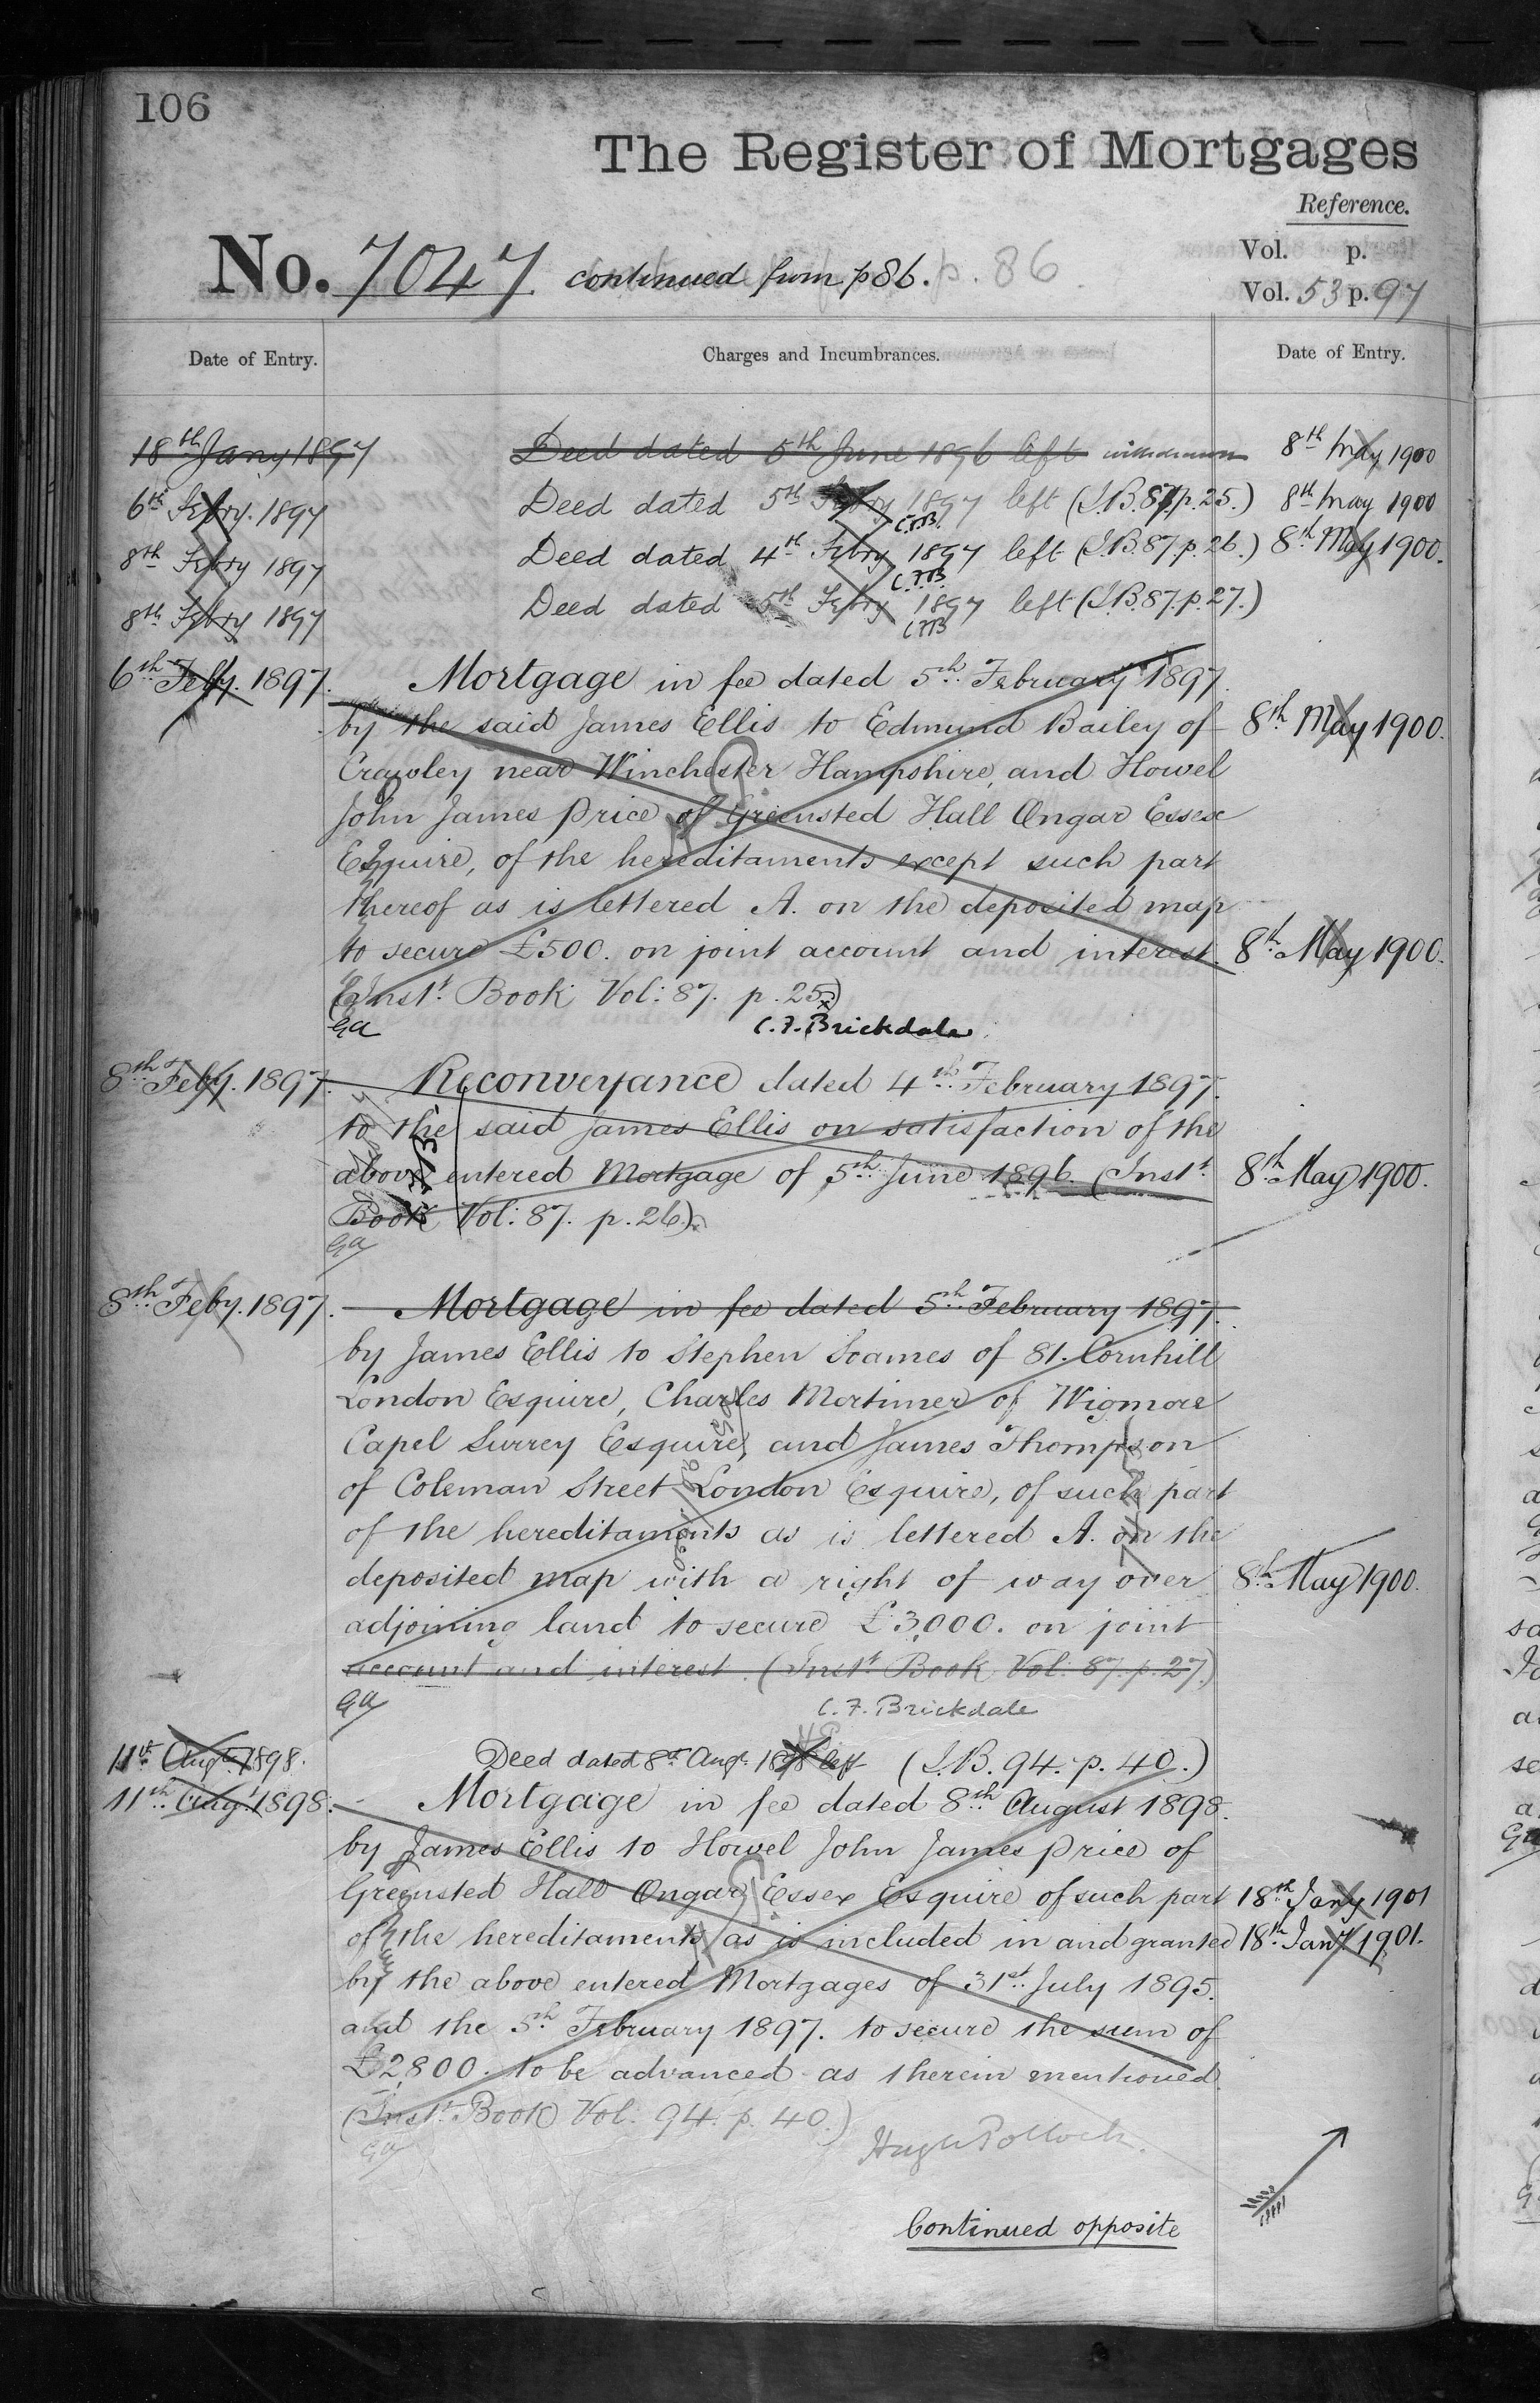 106
The Register of Mortgages
Reference.
Vol. p.
No. 7047 continued from p 86. p. 86
Vol. 53 p. 97
Date of Entry. Charges and Incumbrances. Date of Entry.
18th Jany 1897 Deed dated 5th June 1896 left withdrawn 8th May 1900
6th Febry. 1897 Deed dated 5th Febry 1897 left (I.B. 87 p. 25.) 8th May 1900
C.F.B.
8th Febry 1897 Deed dated 4th Febry 1897 left (I.B. 87. p. 26.) 8th May 1900.
C.F.B.
8th Febry 1897 Deed dated 5th Febry 1897 left (I.B. 87. p. 27.)
C.F.B
6th Feby. 1897. Mortgage in fee dated 5th February 1897.
by the said James Ellis to Edmund Bailey of 8th May 1900.
Crawley near Winchester Hampshire, and Howel
John James Price of Greensted Hall Ongar Essex
Esquire, of the hereditaments except such part
thereof as is lettered A. on the deposited map
to secure £500. on joint account and interest. 8th May 1900.
(Inst. Book Vol: 87. p. 25.)
GA C. F. Brickdale
8th Feby. 1897. Reconveyance dated 4th February 1897.
to the said James Ellis on satisfaction of the
above entered Mortgage of 5th June 1896. (Inst. 8th May 1900.
Book Vol: 87. p. 26.)
GA
8th Feby. 1897. Mortgage in fee dated 5th February 1897.
by James Ellis to Stephen Soames of 81. Cornhill
London Esquire, Charles Mortimer of Wigmore
Capel Surrey Esquire, and James Thompson
of Coleman Street London Esquire, of such part
of the hereditaments as is lettered A. on the
deposited map with a right of way over 8th May 1900.
adjoining land to secure £3,000. on joint
account and interest. (Inst. Book Vol: 87. p. 27.)
GA C. F. Brickdale
11th Augt. 1898. Deed dated 8th Augt. 1898 left (I.B. 94. p. 40.)
11th Augt. 1898. Mortgage in fee dated 8th August 1898.
by James Ellis to Howel John James Price of
Greensted Hall Ongar Essex Esquire of such part 18th Jany 1901
of the hereditaments as is included in and granted 18th Jany 1901.
by the above entered Mortgages of 31st July 1895.
and the 5th February 1897. to secure the sum of
£2,800. to be advanced as therein mentioned.
(Inst. Book Vol. 94. p. 40.)
GA Hugh Pollock.
Continued opposite